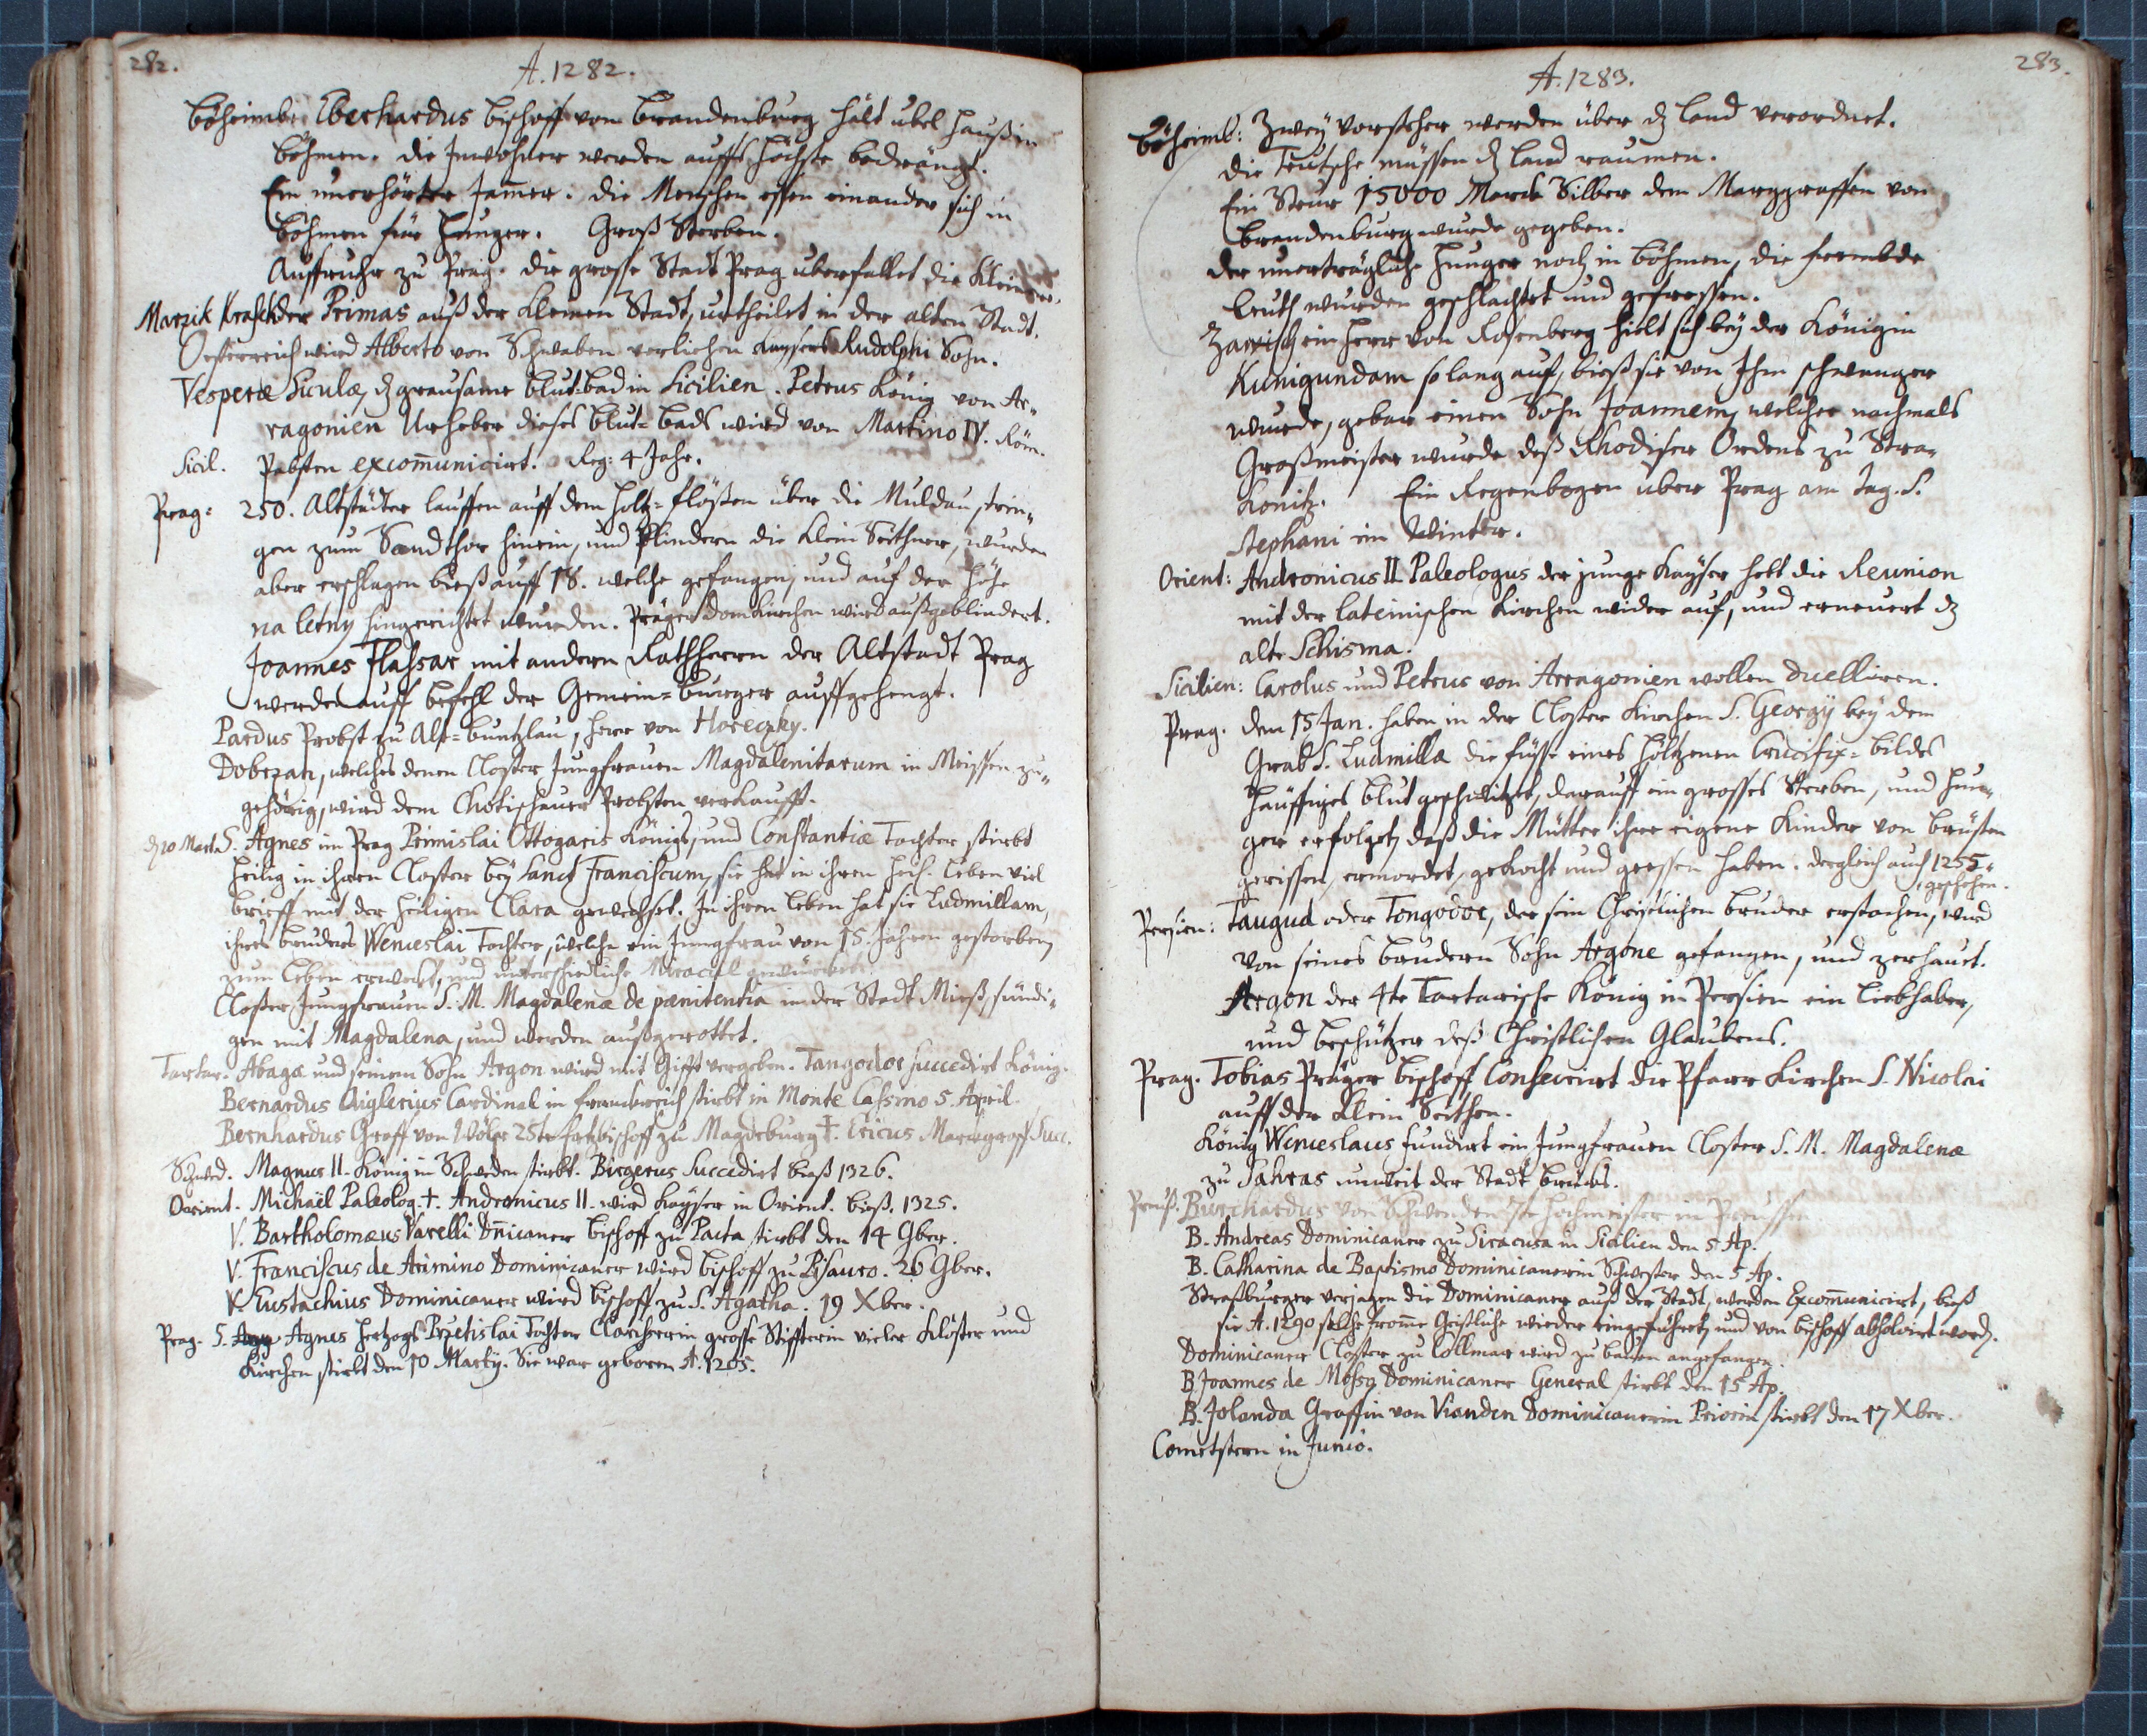 282.
A. 1282.
Böheimb: Eberhardus bischoff von brandenburg hält übel hauß in
böhmen. die Inwohner werden auffs höchste bedrängt.
Ein unerhörter Jam̄er. die Menschen essen einander sich in
böhmen für hunger. Groß Sterben.
Auffruhr zu Prag. die grosse Stadt Prag uberfallet die Kleinere.
der Primas auß der kleinen Stadt, urtheilet in der alten Stadt.
Oesterreich wird Alberto von Schwaben verliehen Kaysers Rudolphi Sohn.
Vesperæ Siculæ, dz grausame blut-bad in Sicilien. Petrus König von Ar-
ragonien Urheber dieses blut-bads wird von Martino IV. Röm.
Sicil. Pabsten excom̄unicirt. Reg: 4 Jahr.
Prag: 250. Altstädter lauffen auff dem holtz-flößen über die Muldau, drin-
gen zum Sandthor hinein, und Plindern die Klein Seithner, wurden
aber erschlagen bieß auff 18. welche gefangen, und auf der höhe
na letny hingerichtet wurden. Präger domkirchen wird außgeblindert.
Joannes Flahsar mit andern Rathherrn der Altstadt Prag
werden auff befehl der Gemein-burger auffgehengt.
Pardus Probst zu Alt-buntzlau, herr von Horeczky.
Dobrzan, welches denen Closter Jungfrauen Magdalenitarum in Meissen zu-
gehörig, wird dem Chotischauer Probsten verkaufft.
S. Agnes im Prag Primislai Ottogaris Königs, und Constantiæ Tochter stirbt
heilig in ihren Closter beÿ Sanct Franciscum, sie hat in ihren heil. Leben viel
brieff mit der heiligen Clara gewechset. In ihren leben hat sie Ludmillam,
ihres bruders Wenceslai Tochter, welche ein Jungfrau von 15. Jahren gestorben,
zum leben erweckt, und unterschiedliche Miracul gewürcket.
Closter Jungfrauen S. M. Magdalenæ de pænitentia in der Stadt Mieß, sündi-
gen mit Magdalena, und werden außgerottet.
Tartar. Abaga und seinem Sohn Argon wird mit Gifft vergeben. Tangodor succedirt König.
Bernardus Aiglerius Cardinal in franckreich stirbt in Monte Cassino 5. April.
Bernhardus Graff von Wölpe 25te Ertzbischoff zu Magdeburg †. Ericus Marckgraff Succ.
Schwed. Magnus II. König in Schweden stirbt. Birgerus Succedirt bieß 1326.
Orient. Michaël Paleolog. †. Andronicus II. wird Kayser in Orient. bieß. 1325.
V. Bartholomæus Varelli Dn̄icaner bischoff zu Pacta stirbt den 14 9ber.
V. Franciscus de Arimino Dominicaner wird bischoff zu Pisauro. 26 9ber.
V. Eustachius Dominicaner wird bischoff zu S. Agatha. 19 Xber.
Prag. S. Agnes hertzogs Przetislai Tochter Clarisserin grosse Stiffterin vieler Klöster und
Kirchen stirbt den 10 Martÿ. Sie war geboren A. 1205.
283.
A. 1283.
Böheimb: Zweÿ Vorsteher werden über dz Land verordnet.
die Teutsche müssen dz Land raumen.
Ein Steur 15000 Marck Silber dem Marggraffen von
brandenburg wurde gegeben.
der unerträgliche hunger noch in böhmen, die frembde
leuth wurden geschlachtet und gefressen.
Zavisch ein herr von Rosenberg hielt sich beÿ der Königin
Kunigundam so lang auf, bieß sie von Ihm schwanger
wurde, gebar einen Sohn Joannem, welcher nachmals
Großmeister wurde deß Rhodiser Ordens zu Stra-
konitz. Ein Regenbogen über Prag am Tag. S.
Stephani im Winter.
Orient: Andronicus II. Paleologus der junge Kayser hebt die Reunion
mit der lateinischen Kirchen wider auf, und erneuert dz
alte Schisma.
Sicilien: Carolus und Petrus von Arragonien wollen duelliren.
Prag. den 15 Jan. haben in der Closter Kirchen S. Georgÿ beÿ dem
Grab S. Ludmilla die füsse eines höltzenen Crucifix-bildes
häuffiges blut geschwitzet, darauff ein grosses Sterben, und hun-
ger erfolget, daß die Mütter ihre eigene Kinder von brüsten
gerissen, ermordet, gekocht und gessen haben. dergleich auch 1255
geschehen.
Persien: Taugud oder Tongodor, der sein Christlichen bruder erstochen, wird
von seines brudern Sohn Argone gefangen, und zerhauet.
Argon der 4te Tartarische König in Persien ein liebhaber,
und beschützer deß Christlichen Glaubens.
Prag. Tobias Präger bischoff Consecrirt die Pfarr Kirchen S. Nicolai
auff der Klein Seithen.
König Wenceslaus fundirt ein Jungfrauen Closter S. M. Magdalenæ
zu Sahras unweit der Stadt brüx.
Preuß. Burchardus von Schwenden hochmeister in Preussen
B. Andreas Dominicaner zu Siracusa in Sicilien den 5 Ap.
B. Catharina de Baptismo Dominicanerin Schwester den 5 Ap.
Straßburger verjagen die Dominicaner auß der Stadt, werden Excom̄unicirt, bieß
sie A. 1290 solche from̄e Geistliche wieder eingeführet, und von bischoff absolvirt word.
Dominicaner Closter zu Collmar wird zu bauen angefangen.
B. Joannes de Dominicaner General stirbt den 15 Ap.
B. Jolanda Graffin von Vianden Dominicanerin Priorin stirbt den 17 Xber.
Cometstern in Junio.